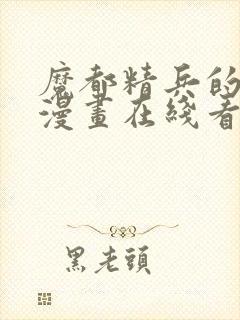 魔都精兵的
漫畫在綫看
黑老頭